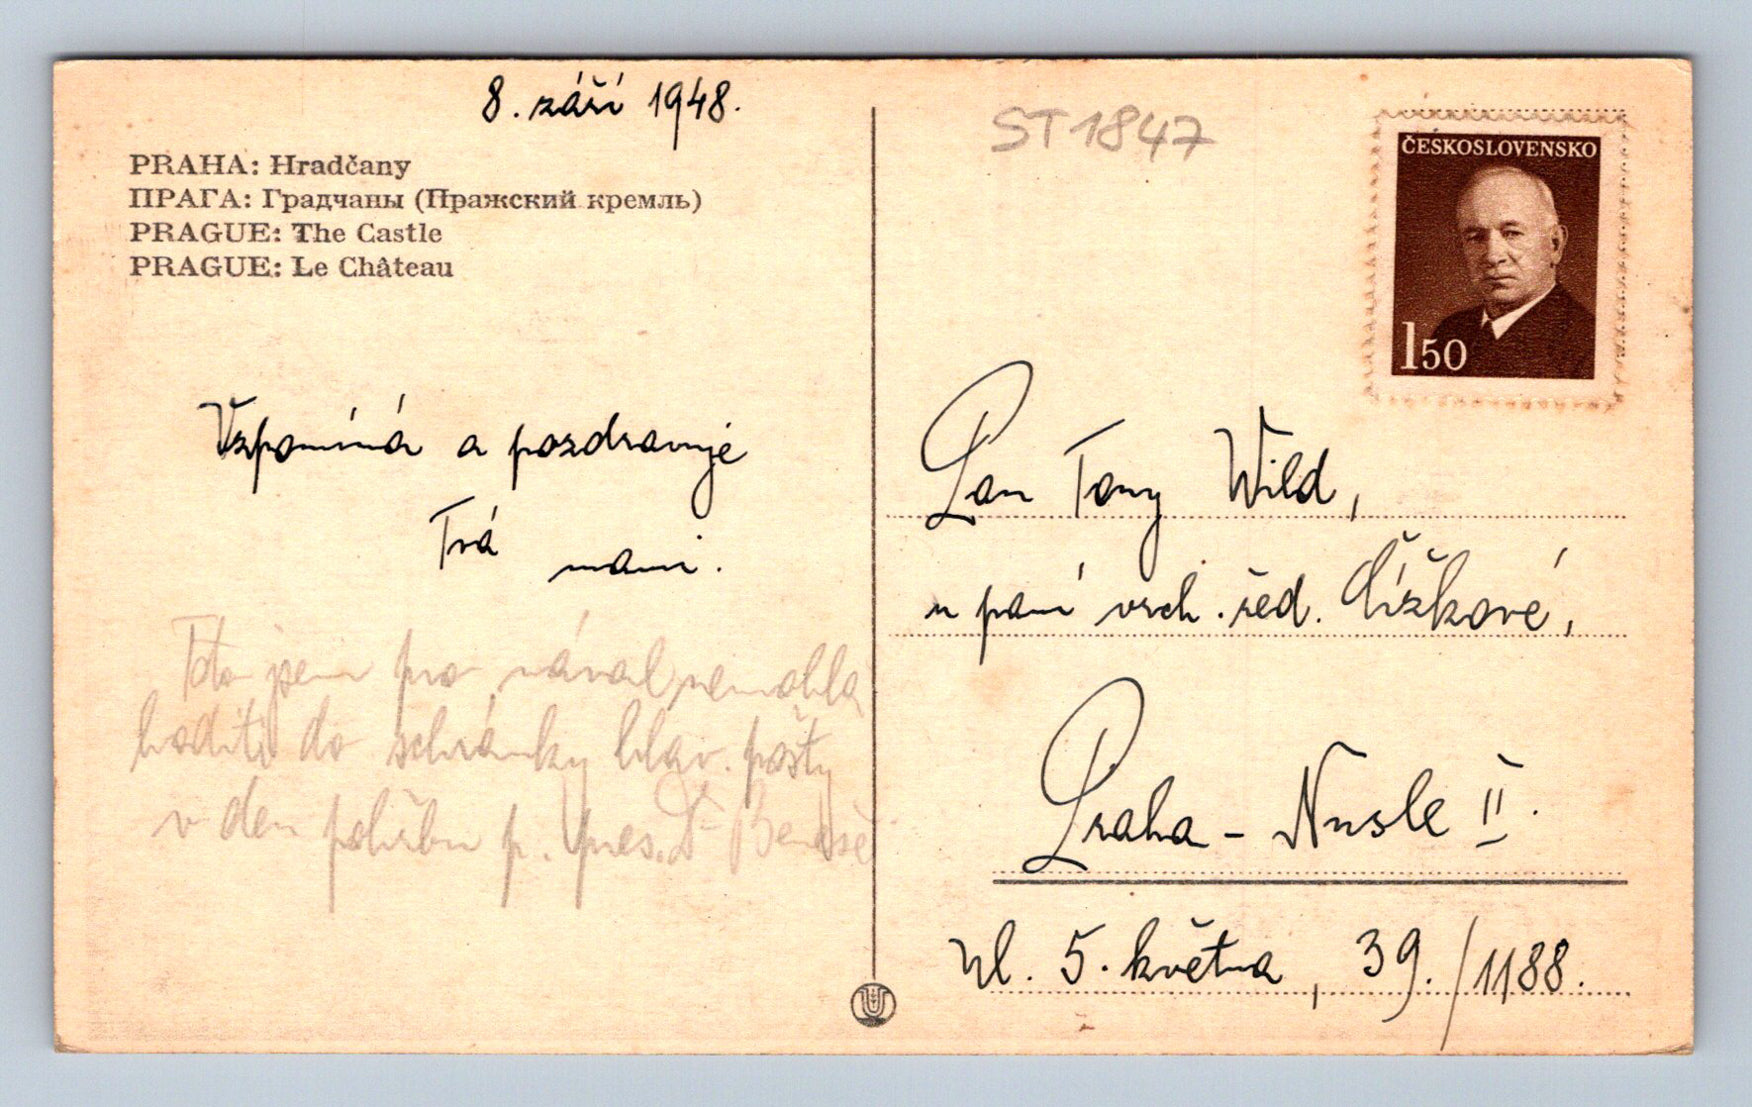 8. září 1948.
ST1847
PRAHA: Hradčany
ПРАГА: Градчаны (Пражский кремль)
PRAGUE: The Castle
PRAGUE: Le Château
ČESKOSLOVENSKO
150
Vzpomíná a pozdravuje
Tvá
mami.
Toto jsem pro nával nemohla
hoditi do schránky hlav. pošty
v den pohřbu p. pres. Dr Beneše
Pan Tony Wild,
u paní vrch. řed. Čížkové,
Praha - Nusle II.
Ul. 5. května, 39./1188.